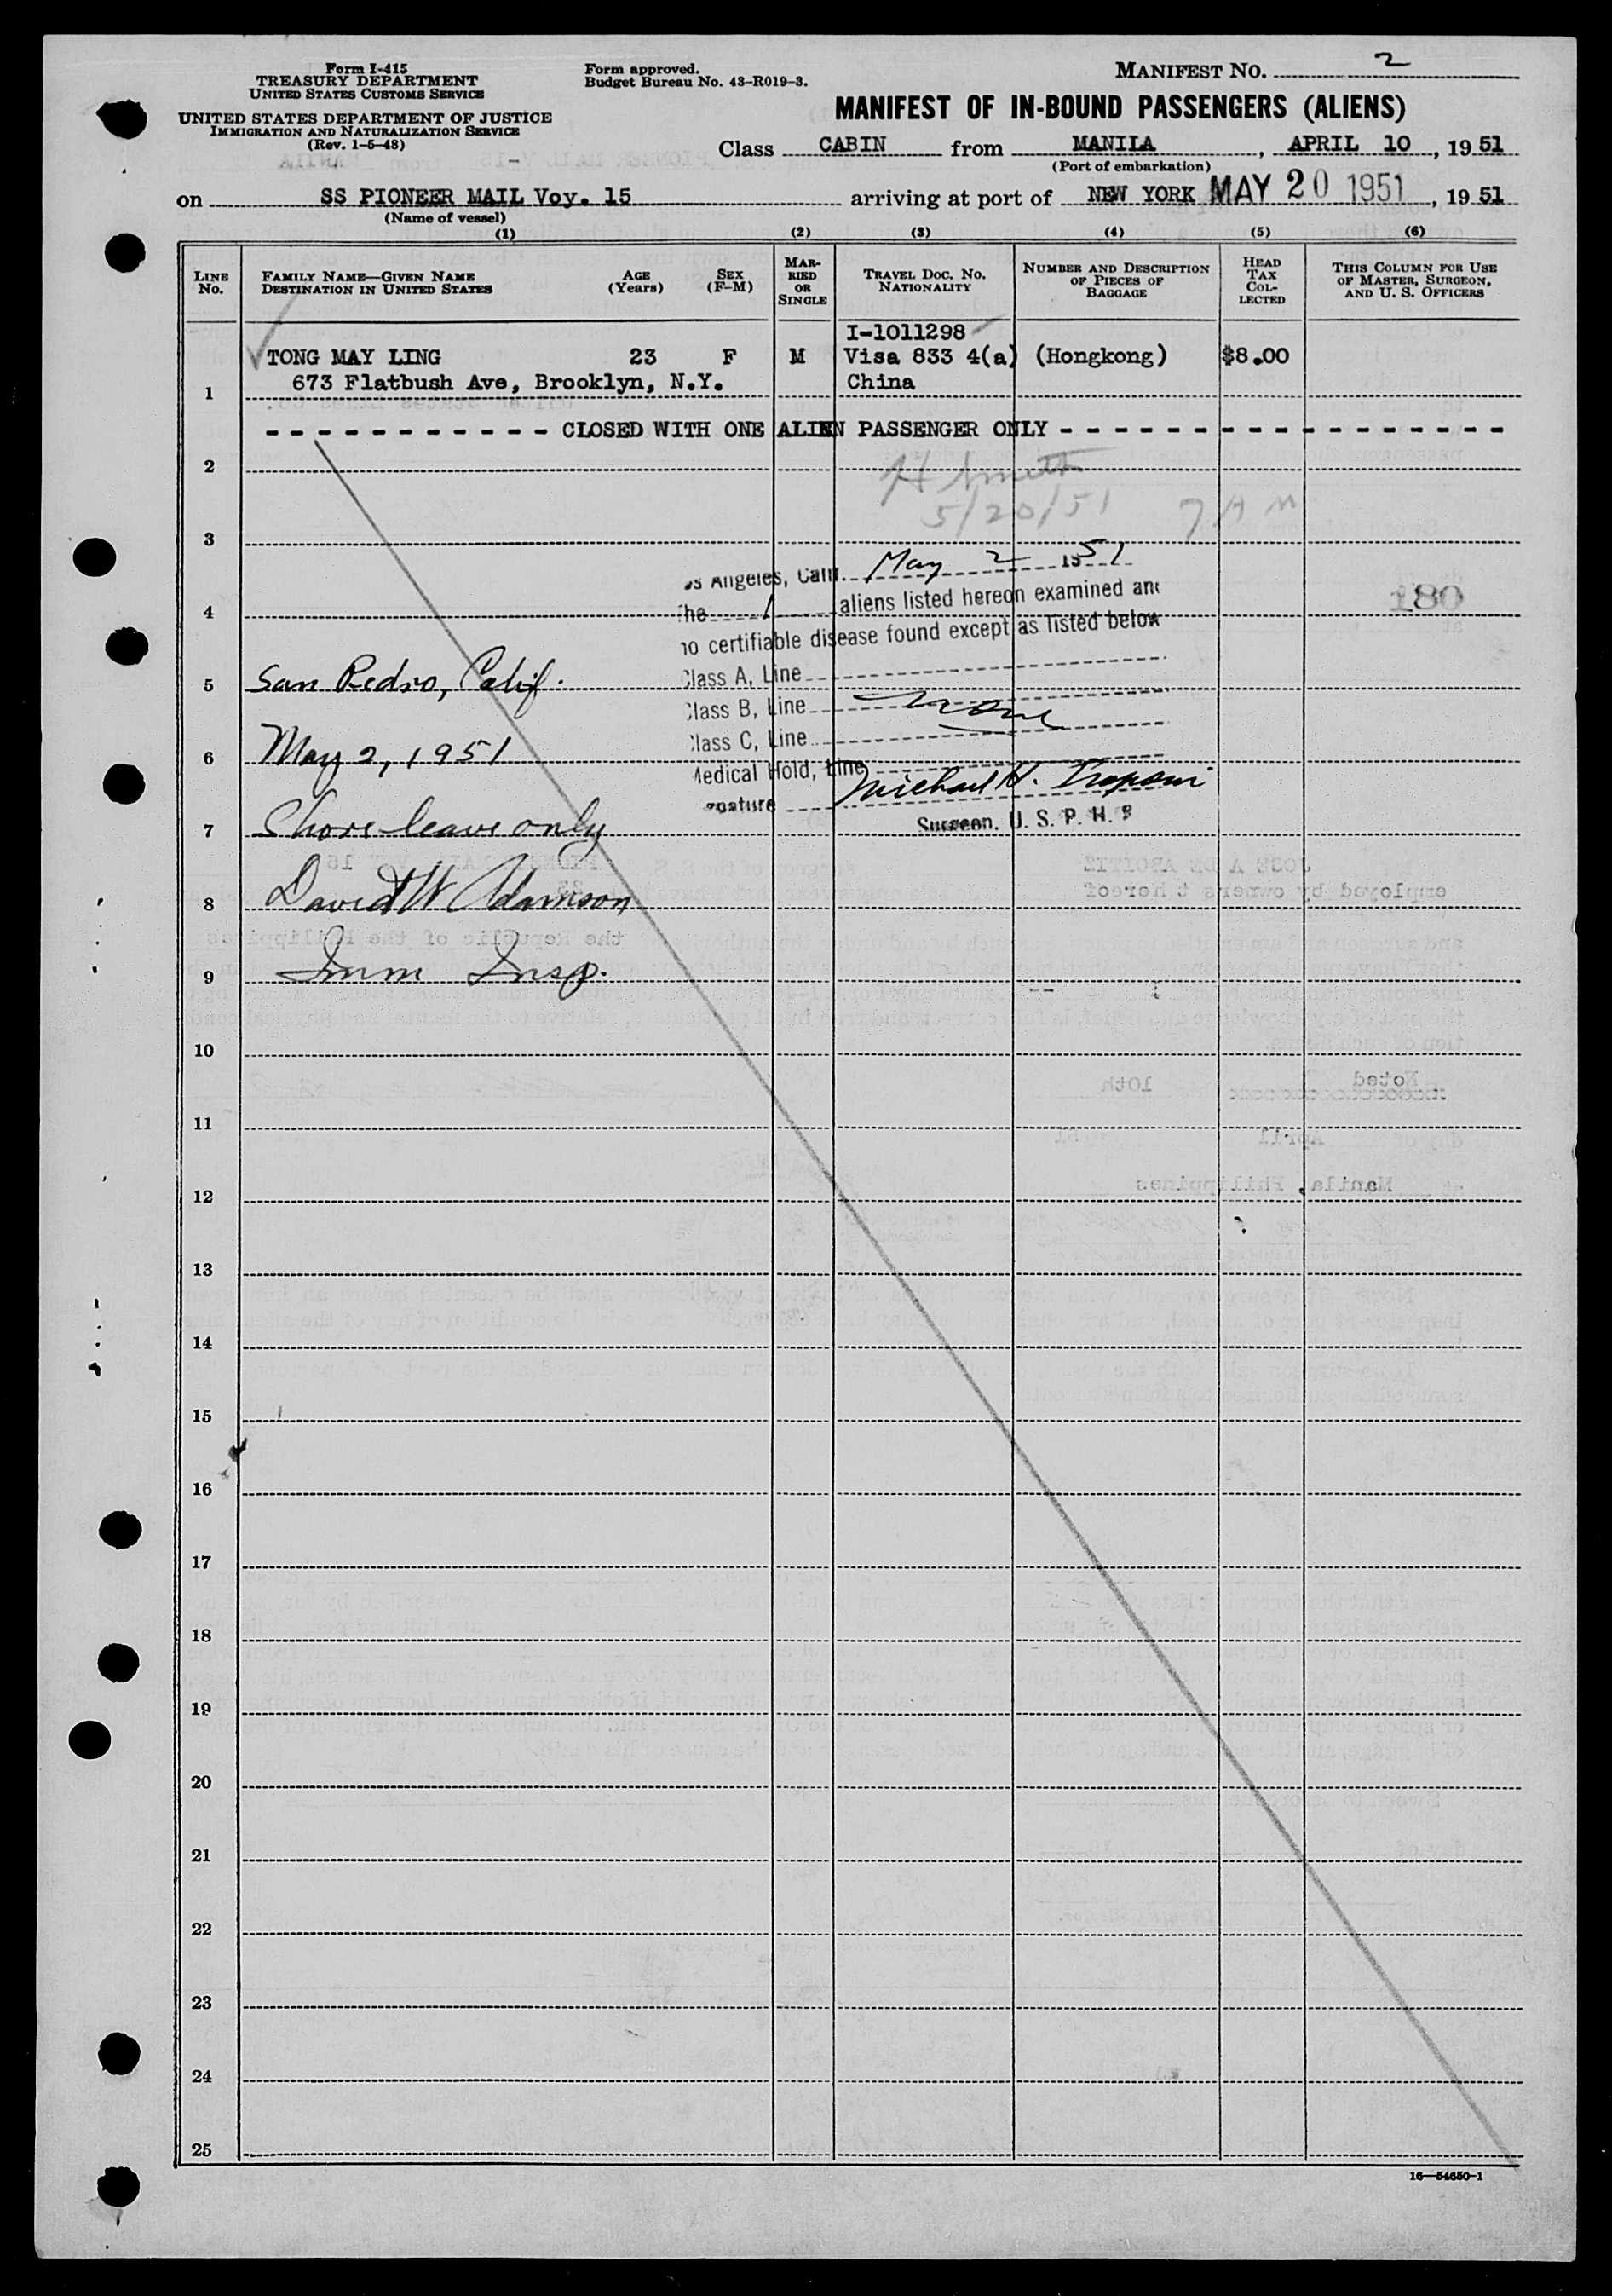 Form I-415
TREASURY DEPARTMENT
UNITED STATES CUSTOMS SERVICE
UNITED STATES DEPARTMENT OF JUSTICE
IMMIGRATION AND NATURALIZATION SERVICE
(Rev. 1-5-48)
Form approved.
Budget Bureau No. 43-R019-3.
MANIFEST NO. 2
MANIFEST OF IN-BOUND PASSENGERS (ALIENS)
Class CABIN from MANILA, APRIL 10, 19 51
(Port of embarkation)
on SS PIONEER MAIL Voy. 15 arriving at port of NEW YORK MAY 20 1951, 19 51
(Name of vessel)
(1) (2) (3) (4) (5) (6)
LINE No.
FAMILY NAME—GIVEN NAME
DESTINATION IN UNITED STATES
AGE (Years)
SEX (F-M)
MARRIED OR SINGLE
TRAVEL DOC. NO. NATIONALITY
NUMBER AND DESCRIPTION OF PIECES OF BAGGAGE
HEAD TAX COLLECTED
THIS COLUMN FOR USE OF MASTER, SURGEON, AND U. S. OFFICERS
I-1011298
TONG MAY LING 23 F M Visa 833 4(a) (Hongkong) $8.00
1 673 Flatbush Ave, Brooklyn, N.Y. China
- - - - - - - - - - - - CLOSED WITH ONE ALIEN PASSENGER ONLY - - - - - - - - - - - - - - - - - -
2
H Smith
5/20/51 7 AM
3
os Angeles, Calif. May 2 1951
The 1 aliens listed hereon examined and
4
180
no certifiable disease found except as listed below
Class A, Line
5 San Pedro, Calif.
Class B, Line none
Class C, Line
6 May 2, 1951
Medical Hold, Line
gnature Michael H.
Surgeon, U. S. P. H. S
7 Shore leave only
8 David W Adamson
9 Imm Insp.
10
11
12
13
14
15
16
17
18
19
20
21
22
23
24
25
16—54650-1